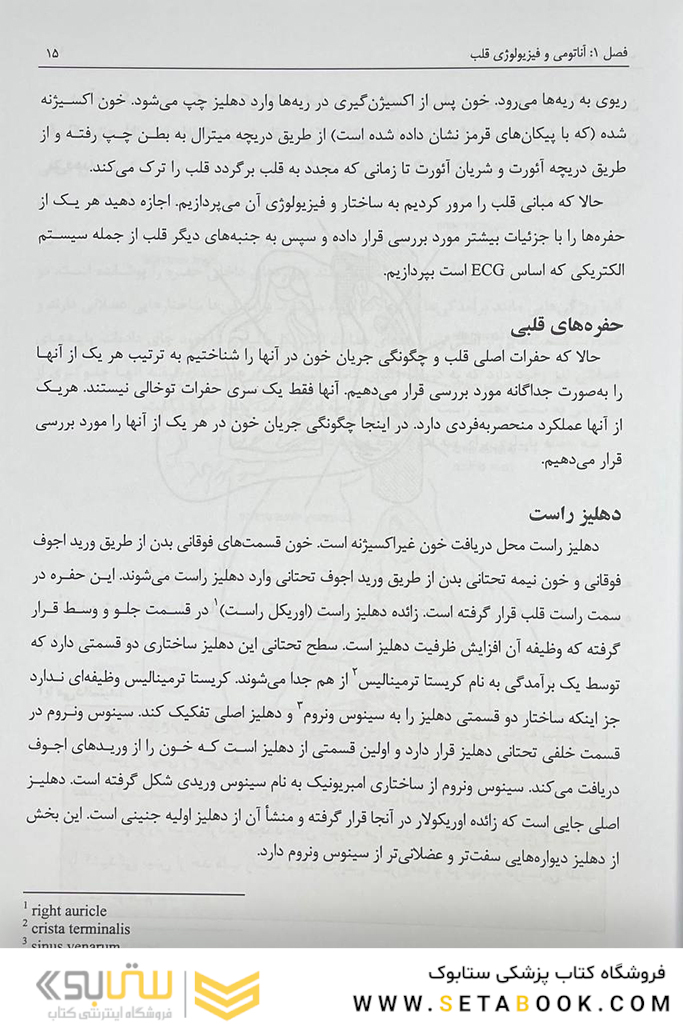 فصل ۱: آناتومی و فیزیولوژی قلب ۱۵
ریوی به ریه‌ها می‌رود. خون پس از اکسیژن‌گیری در ریه‌ها وارد دهلیز چپ می‌شود. خون اکسیژنه
شده (که با پیکان‌های قرمز نشان داده شده است) از طریق دریچه میترال به بطن چپ رفته و از
طریق دریچه آئورت و شریان آئورت تا زمانی که مجدد به قلب برگردد قلب را ترک می‌کند.
حالا که مبانی قلب را مرور کردیم به ساختار و فیزیولوژی آن می‌پردازیم. اجازه دهید هر یک از
حفره‌ها را با جزئیات بیشتر مورد بررسی قرار داده و سپس به جنبه‌های دیگر قلب از جمله سیستم
الکتریکی که اساس ECG است بپردازیم.
حفره‌های قلبی
حالا که حفرات اصلی قلب و چگونگی جریان خون در آنها را شناختیم به ترتیب هر یک از آنها
را به‌صورت جداگانه مورد بررسی قرار می‌دهیم. آنها فقط یک سری حفرات توخالی نیستند. هریک
از آنها عملکرد منحصربه‌فردی دارد. در اینجا چگونگی جریان خون در هر یک از آنها را مورد بررسی
قرار می‌دهیم.
دهلیز راست
دهلیز راست محل دریافت خون غیراکسیژنه است. خون قسمت‌های فوقانی بدن از طریق ورید اجوف
فوقانی و خون نیمه تحتانی بدن از طریق ورید اجوف تحتانی وارد دهلیز راست می‌شوند. این حفره در
سمت راست قلب قرار گرفته است. زائده دهلیز راست (اوریکل راست)¹ در قسمت جلو و وسط قرار
گرفته که وظیفه آن افزایش ظرفیت دهلیز است. سطح تحتانی این دهلیز ساختاری دو قسمتی دارد که
توسط یک برآمدگی به نام کریستا ترمینالیس² از هم جدا می‌شوند. کریستا ترمینالیس وظیفه‌ای ندارد
جز اینکه ساختار دو قسمتی دهلیز را به سینوس ونروم³ و دهلیز اصلی تفکیک کند. سینوس ونروم در
قسمت خلفی تحتانی دهلیز قرار دارد و اولین قسمتی از دهلیز است که خون را از وریدهای اجوف
دریافت می‌کند. سینوس ونروم از ساختاری امبریونیک به نام سینوس وریدی شکل گرفته است. دهلیز
اصلی جایی است که زائده اوریکولار در آنجا قرار گرفته و منشأ آن از دهلیز اولیه جنینی است. این بخش
از دهلیز دیواره‌هایی سفت‌تر و عضلانی‌تر از سینوس ونروم دارد.
¹ right auricle
² crista terminalis
³ sinus venarum
فروشگاه کتاب پزشکی ستابوک
WWW.SETABOOK.COM
ستابوک
فروشگاه اینترنتی کتاب